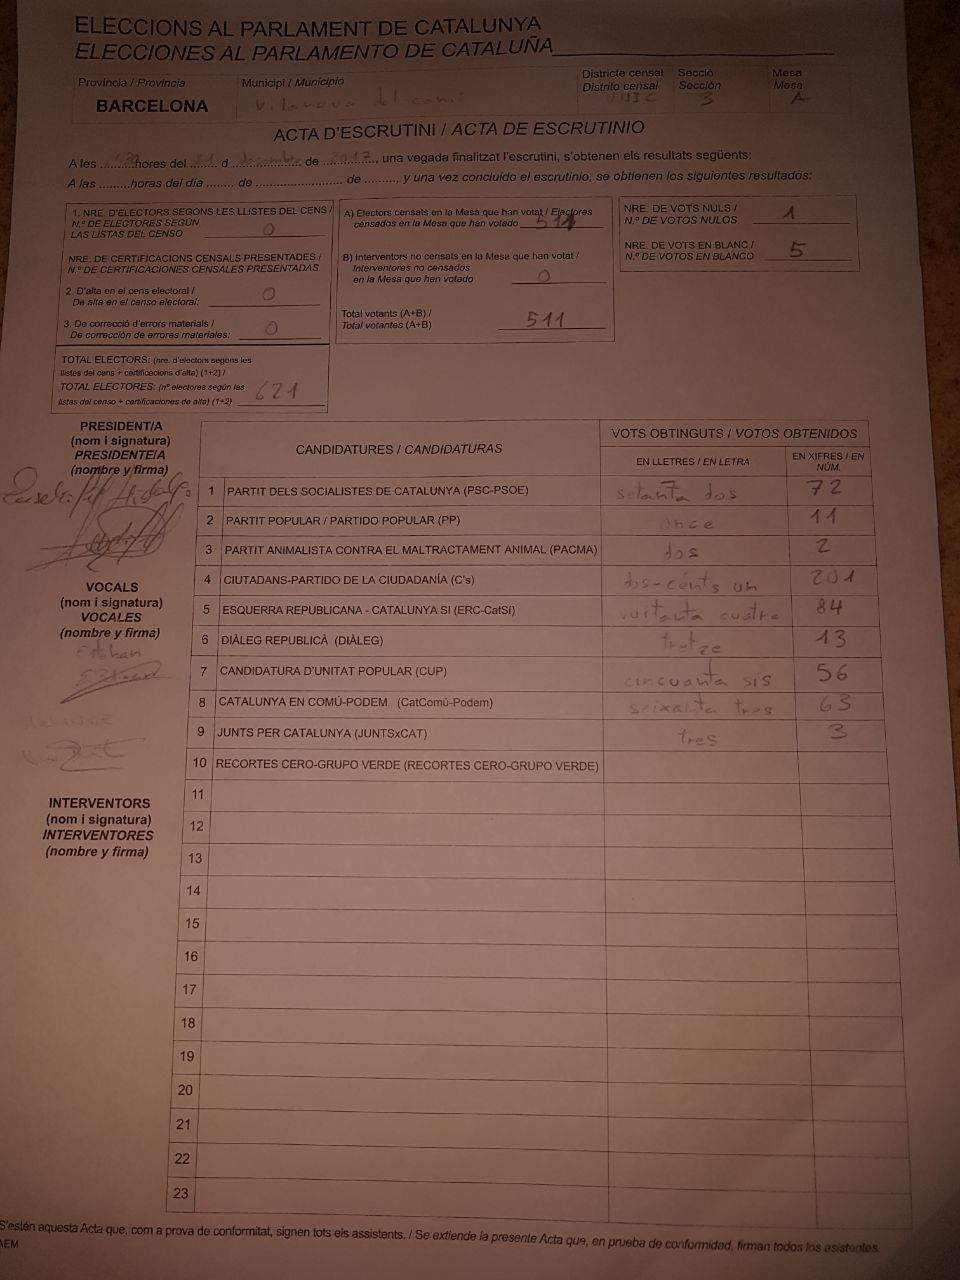 ELECCIONS AL PARLAMENT DE CATALUNYA
ELECCIONES AL PARLAMENTO DE CATALUÑA
Província / Provincia
BARCELONA
Municipi / Municipio
Vilanova del camí
Districte censal
Distrito censal
UNIC
Secció
Sección
3
Mesa
Mesa
A
ACTA D'ESCRUTINI / ACTA DE ESCRUTINIO
A les ........ hores del 21 d desembre de 2017, una vegada finalitzat l'escrutini, s'obtenen els resultats següents:
A las .........horas del día ........ de .......................... de ........., y una vez concluido el escrutinio, se obtienen los siguientes resultados:
1. NRE. D'ELECTORS SEGONS LES LLISTES DEL CENS /
N.º DE ELECTORES SEGÚN
LAS LISTAS DEL CENSO 0
NRE. DE CERTIFICACIONS CENSALS PRESENTADES /
N.º DE CERTIFICACIONES CENSALES PRESENTADAS
2. D'alta en el cens electoral /
De alta en el censo electoral: 0
3. De correcció d'errors materials /
De corrección de errores materiales: 0
TOTAL ELECTORS: (nre. d'electors segons les
llistes del cens + certificacions d'alta) (1+2) /
TOTAL ELECTORES: (nº electores según las
listas del censo + certificaciones de alta) (1+2) 621
A) Electors censats en la Mesa que han votat / Electores
censados en la Mesa que han votado 511
B) Interventors no censats en la Mesa que han votat /
Interventores no censados
en la Mesa que han votado 0
Total votants (A+B) /
Total votantes (A+B) 511
NRE. DE VOTS NULS /
N.º DE VOTOS NULOS 1
NRE. DE VOTS EN BLANC /
N.º DE VOTOS EN BLANCO 5
PRESIDENT/A
(nom i signatura)
PRESIDENTE/A
(nombre y firma)
Hidalgo
VOCALS
(nom i signatura)
VOCALES
(nombre y firma)
Esteban
INTERVENTORS
(nom i signatura)
INTERVENTORES
(nombre y firma)
CANDIDATURES / CANDIDATURAS
VOTS OBTINGUTS / VOTOS OBTENIDOS
EN LLETRES / EN LETRA
EN XIFRES / EN
NÚM.
1 PARTIT DELS SOCIALISTES DE CATALUNYA (PSC-PSOE) setanta dos 72
2 PARTIT POPULAR / PARTIDO POPULAR (PP) once 11
3 PARTIT ANIMALISTA CONTRA EL MALTRACTAMENT ANIMAL (PACMA) dos 2
4 CIUTADANS-PARTIDO DE LA CIUDADANÍA (C's) dos-cents un 201
5 ESQUERRA REPUBLICANA - CATALUNYA SI (ERC-CatSí) vuitanta cuatre 84
6 DIÀLEG REPUBLICÀ (DIÀLEG) tretze 13
7 CANDIDATURA D'UNITAT POPULAR (CUP) cincuanta sis 56
8 CATALUNYA EN COMÚ-PODEM (CatComú-Podem) seixanta tres 63
9 JUNTS PER CATALUNYA (JUNTSxCAT) tres 3
10 RECORTES CERO-GRUPO VERDE (RECORTES CERO-GRUPO VERDE)
11
12
13
14
15
16
17
18
19
20
21
22
23
S'estén aquesta Acta que, com a prova de conformitat, signen tots els assistents. / Se extiende la presente Acta que, en prueba de conformidad, firman todos los asistentes.
AEM